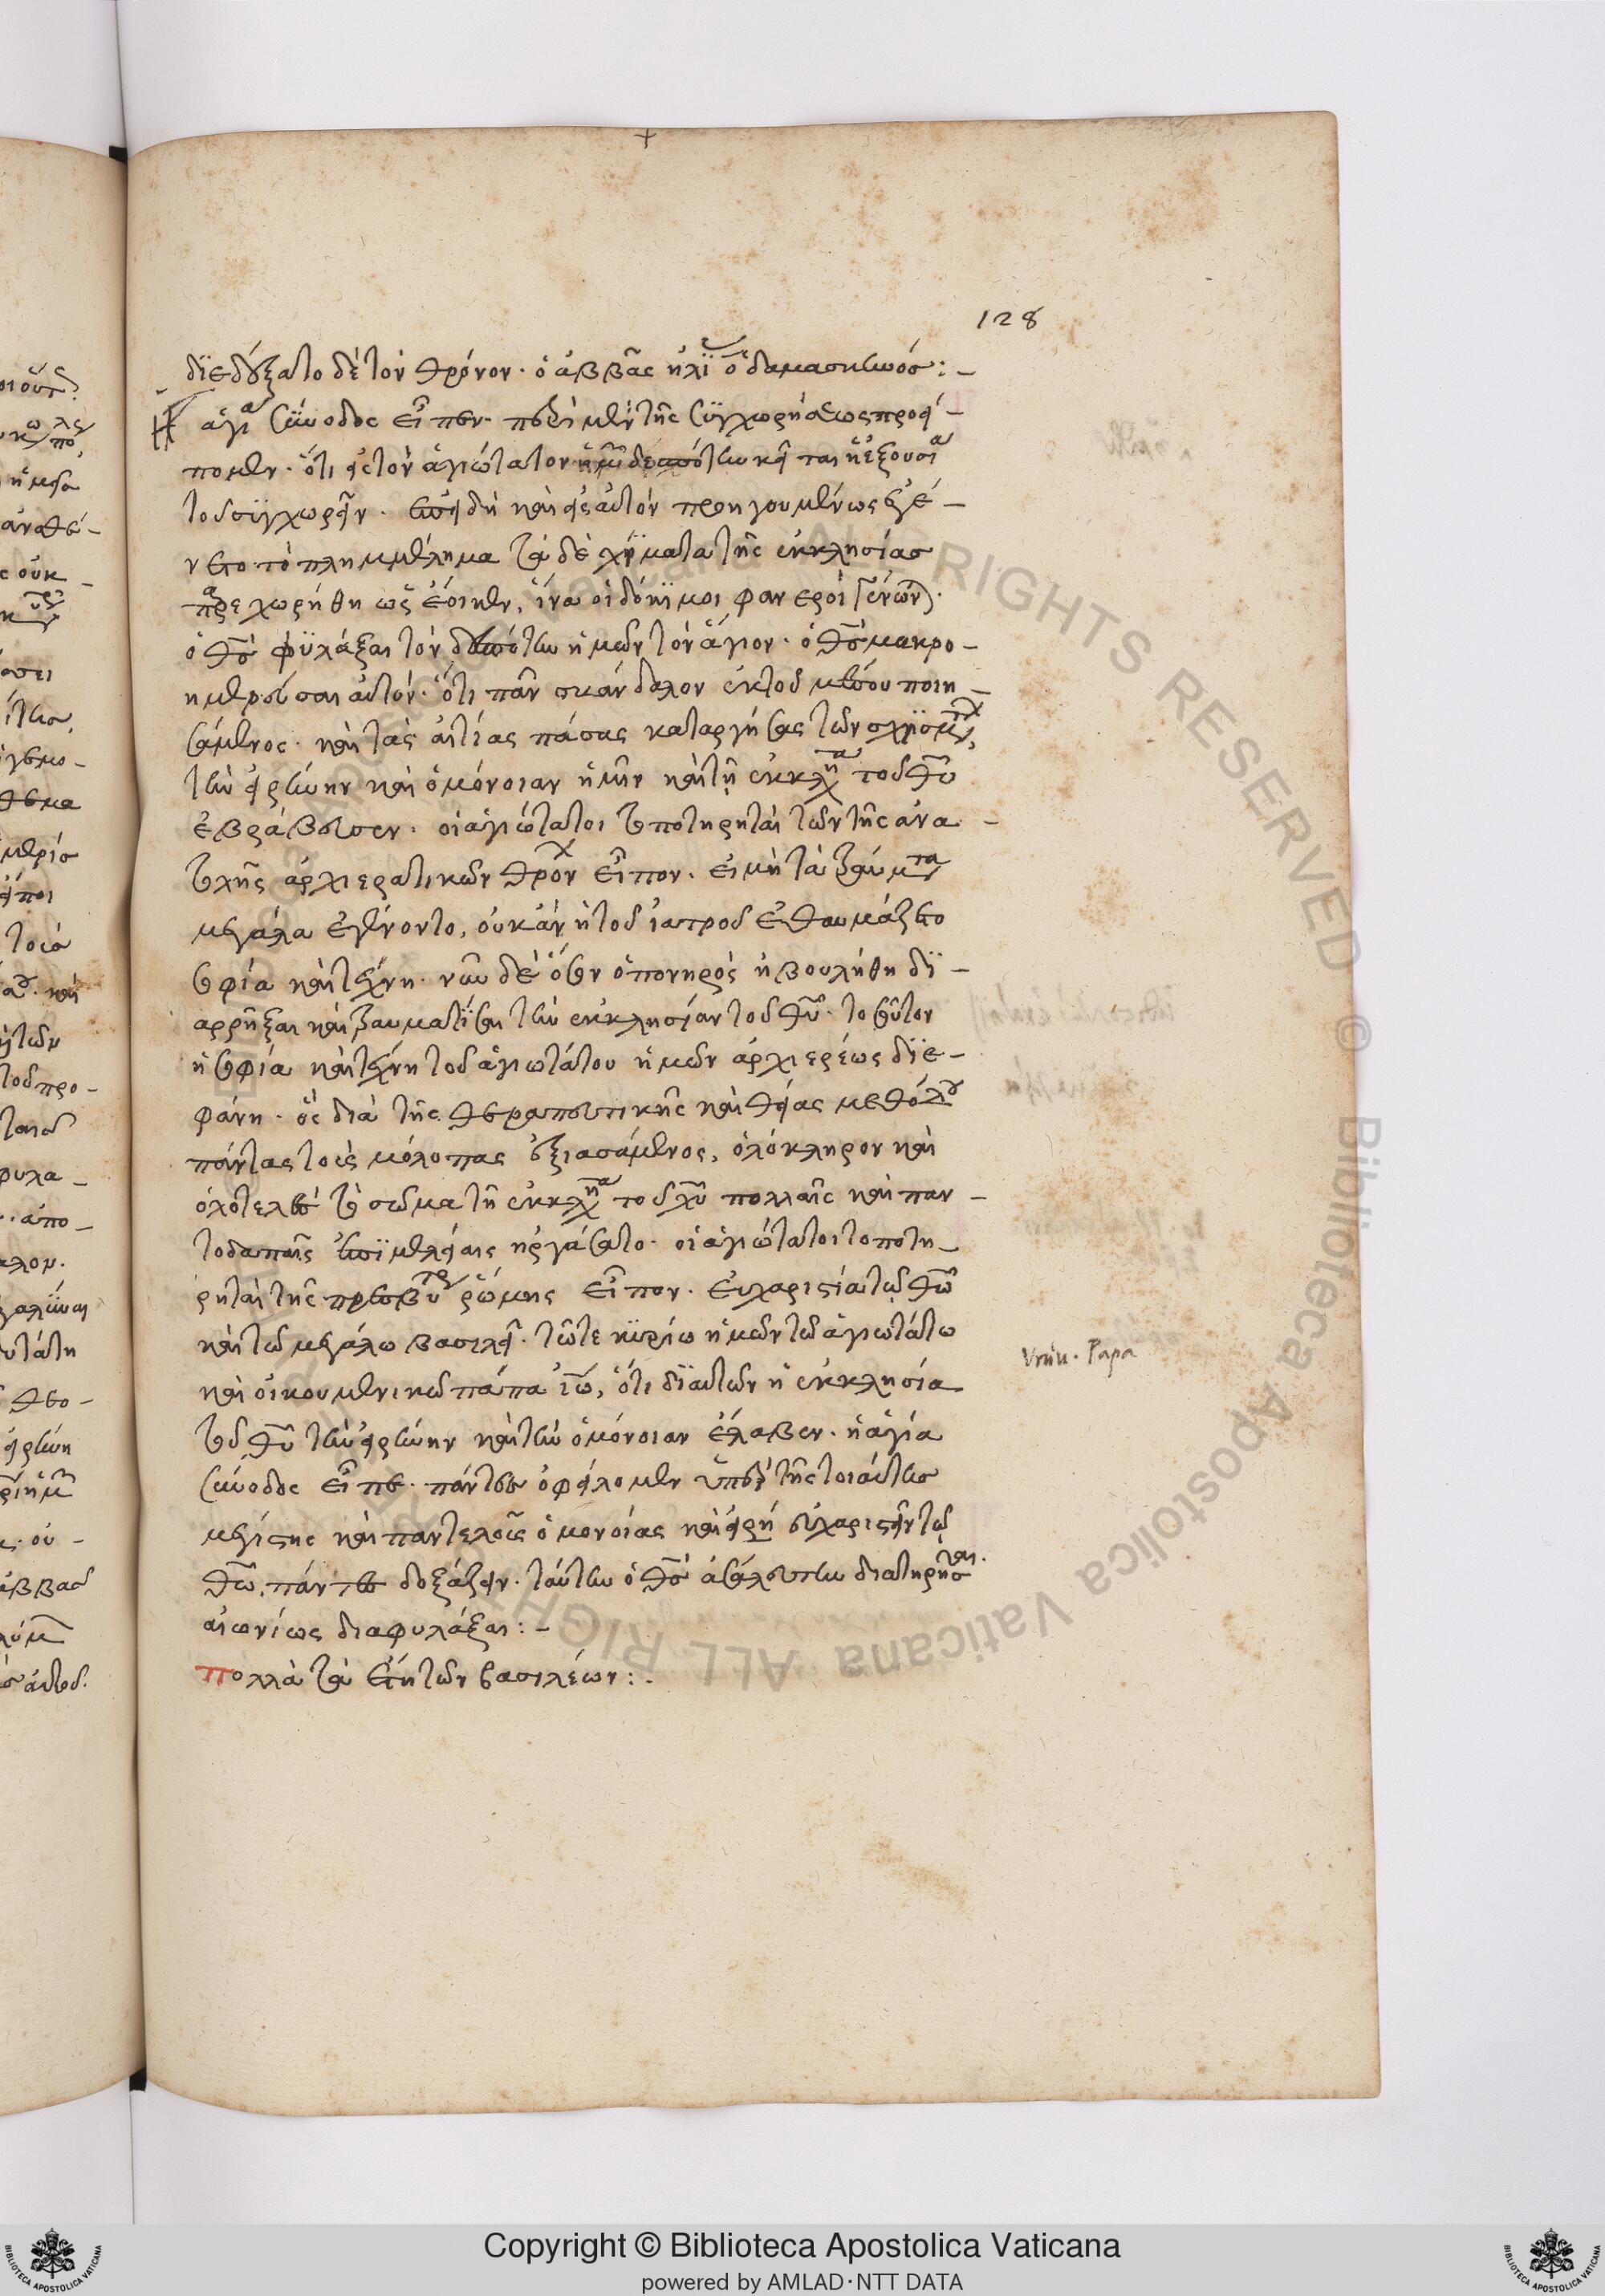 128
διεδέξατο δὲ τὸν θρόνον· ὁ ἀββᾶς ἠλϊ ὁ δαμασκηνός:-
Ἡ ἁγία σύνοδος εἶπεν· περὶ μὲν τῆς συγχωρήσεως προεί-
πομεν· ὅτι εἰς τὸν ἁγιώτατον ἡμῶν δεσπότην κεῖται ἡ ἐξουσία
τοῦ συγχωρεῖν· ἐπειδὴ καὶ εἰς αὐτὸν προηγουμένως ἐγέ-
νετο τὸ πλημμέλημα τὰ δὲ τῆς ἐκκλησίας
παρεχωρήθη ὡς ἔοικεν, ἵνα οἱ δόκιμοι φανεροὶ γένωνται·
ὁ θς φυλάξαι τὸν δεσπότην ἡμῶν τὸν ἅγιον· ὁ θς μακρο-
ημερεύσαι αὐτόν· ὅτι πᾶν σκάνδαλον ἐκ τοῦ μέσου ποιη-
σάμενος· καὶ τὰς αἰτίας πάσας καταργήσας τῶν σχισμάτων,
τὴν εἰρήνην καὶ ὁμόνοιαν ἡμῖν καὶ τῇ ἐκκλησίᾳ τοῦ θυ
ἐβράβευσεν· οἱ ἁγιώτατοι τοποτηρηταὶ τῶν τῆς ἀνα-
τολῆς ἀρχιερατικῶν θρόνων εἶπον· εἰ μὴ τὰ τραύματα
μεγάλα ἐγένοντο, οὐκ ἂν ἡ τοῦ ἰατροῦ ἐθαυμάζετο
σοφία καὶ τέχνη· νῦν δὲ ὅσον ὁ πονηρὸς ἠβουλήθη δϊ-
αρρῆξαι καὶ τραυματίσαι τὴν ἐκκλησίαν τοῦ θυ· τοσοῦτον
ἡ σοφία καὶ τέχνη τοῦ ἁγιωτάτου ἡμῶν ἀρχιερέως διε-
φάνη· ὃς διὰ τῆς θεραπευτικῆς καὶ θείας μεθόδου
πάντας τοὺς μόλωπας ἐξιασάμενος, ὁλόκληρον καὶ
ὁλοτελὲς τὸ σῶμα τῆ ἐκκλησία τοῦ χυ πολλαῖς καὶ παν-
τοδαπαῖς ἐπιμελείαις ἠργάσατο· οἱ ἁγιώτατοι τοποτη-
ρηταὶ τῆς πρεσβυτέρας ῥώμης εἶπον· εὐχαριστία τῷ θῶ
καὶ τῶ μεγάλω βασιλεῖ· τῶ τε κυρίω ἡμῶν τῶ ἁγιωτάτω
καὶ οἰκουμενικῶ πάπα ἰω, ὅτι δι αὐτῶν ἡ ἐκκλησία
τοῦ θυ τὴν εἰρήνην καὶ τὴν ὁμόνοιαν ἔλαβεν· ἡ ἁγία
σύνοδος εἶπε· πάντες ὀφείλομεν ὑπὲρ τῆς τοιαύτης
μεγίστης καὶ παντελοῦς ὁμονοίας καὶ εἰρήνης εὐχαριστεῖν τῷ
θῶ, πάντες δοξάζειν· ταύτην ὁ θς ἀσάλευτον διατηρῆσαι·
αἰωνίως διαφυλάξαι:-
πολλὰ τὰ ἔτη τῶν βασιλέων:.
Papa
Copyright © Biblioteca Apostolica Vaticana
powered by AMLAD·NTT DATA